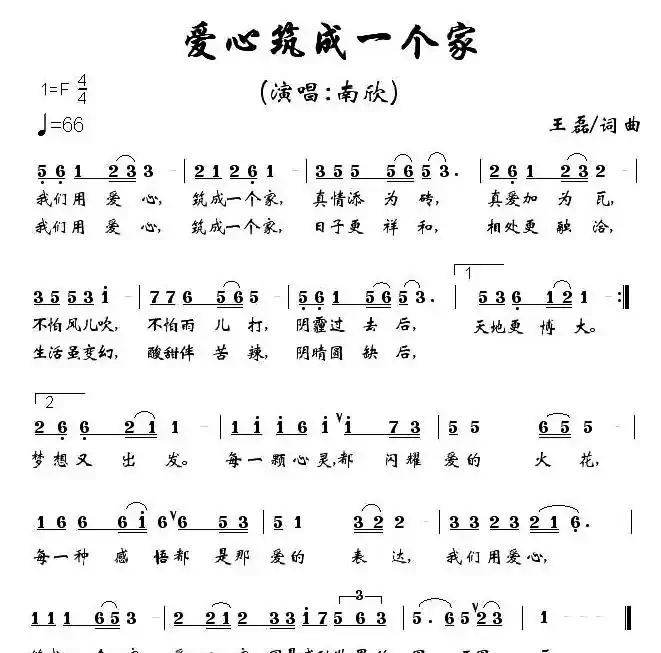 爱心筑成一个家
(演唱:南欣)
1=F 4/4
♩=66
王磊/词曲
5 6 1 2 3 3 - | 2 1 2 6 1 - | 3 5 5 5 6 5 3. | 2 6 1 2 3 2 - |
我们用 爱 心, 筑成一个家, 真情添 为 砖, 真爱加 为 瓦,
我们用 爱 心, 筑成一个家, 日子更 祥 和, 相处更 融 洽,
3 5 5 3 i - | 7 7 6 5 6 5 - | 5 6 1 5 6 5 3. | 1 5 3 6 1 2 1 - :‖
不怕风儿吹, 不怕雨 儿 打, 阴霾过 去 后, 天地更 博 大。
生活虽变幻, 酸甜伴 苦 辣, 阴晴圆 缺 后,
2
2 6 6 2 1 1 - | 1 i i i 6 i ∨ i 7 3 | 5 5 6 5 5 - |
梦想又 出 发。 每一颗心灵,都 闪耀 爱的 火 花,
1 6 6 6 i 6 ∨ 6 5 3 | 5 1 3 2 2 - | 3 3 2 3 2 1 6. |
每一种 感 悟都 是那 爱的 表 达, 我们用爱心,
1 1 1 6 5 3 - | 2 2 1 2 3 3 i 7 5 6 3 | 5. 6 5 ∨ 2 3 1 - - - ‖